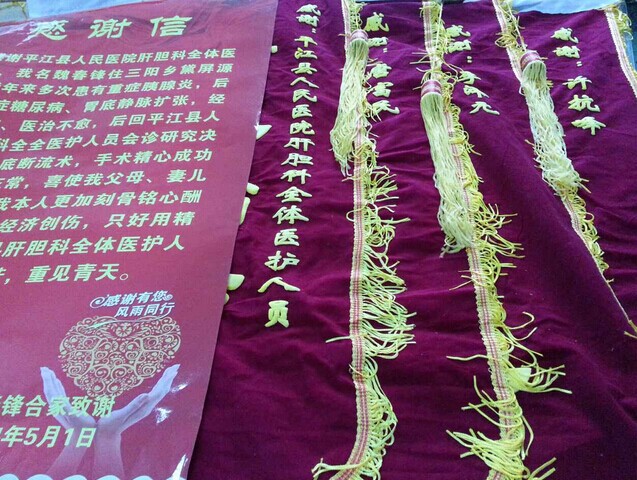 感谢信
谢平江县人民医院肝胆科全体医
，我名魏春锋住三阳乡黛屏源
年来多次患有重症胰腺炎，后
症糖尿病、胃底静脉扩张，经
、医治不愈，后回平江县人
科全全医护人员会诊研究决
底断流术，手术精心成功
常，喜使我父母、妻儿
我本人更加刻骨铭心酬
经济创伤，只好用精
肝胆科全体医护人
，重见青天。
感谢有您
风雨同行
锋合家致谢
年5月1日
感谢：平江县人民医院肝胆科全体医护人员
感谢：
感谢：
感谢：